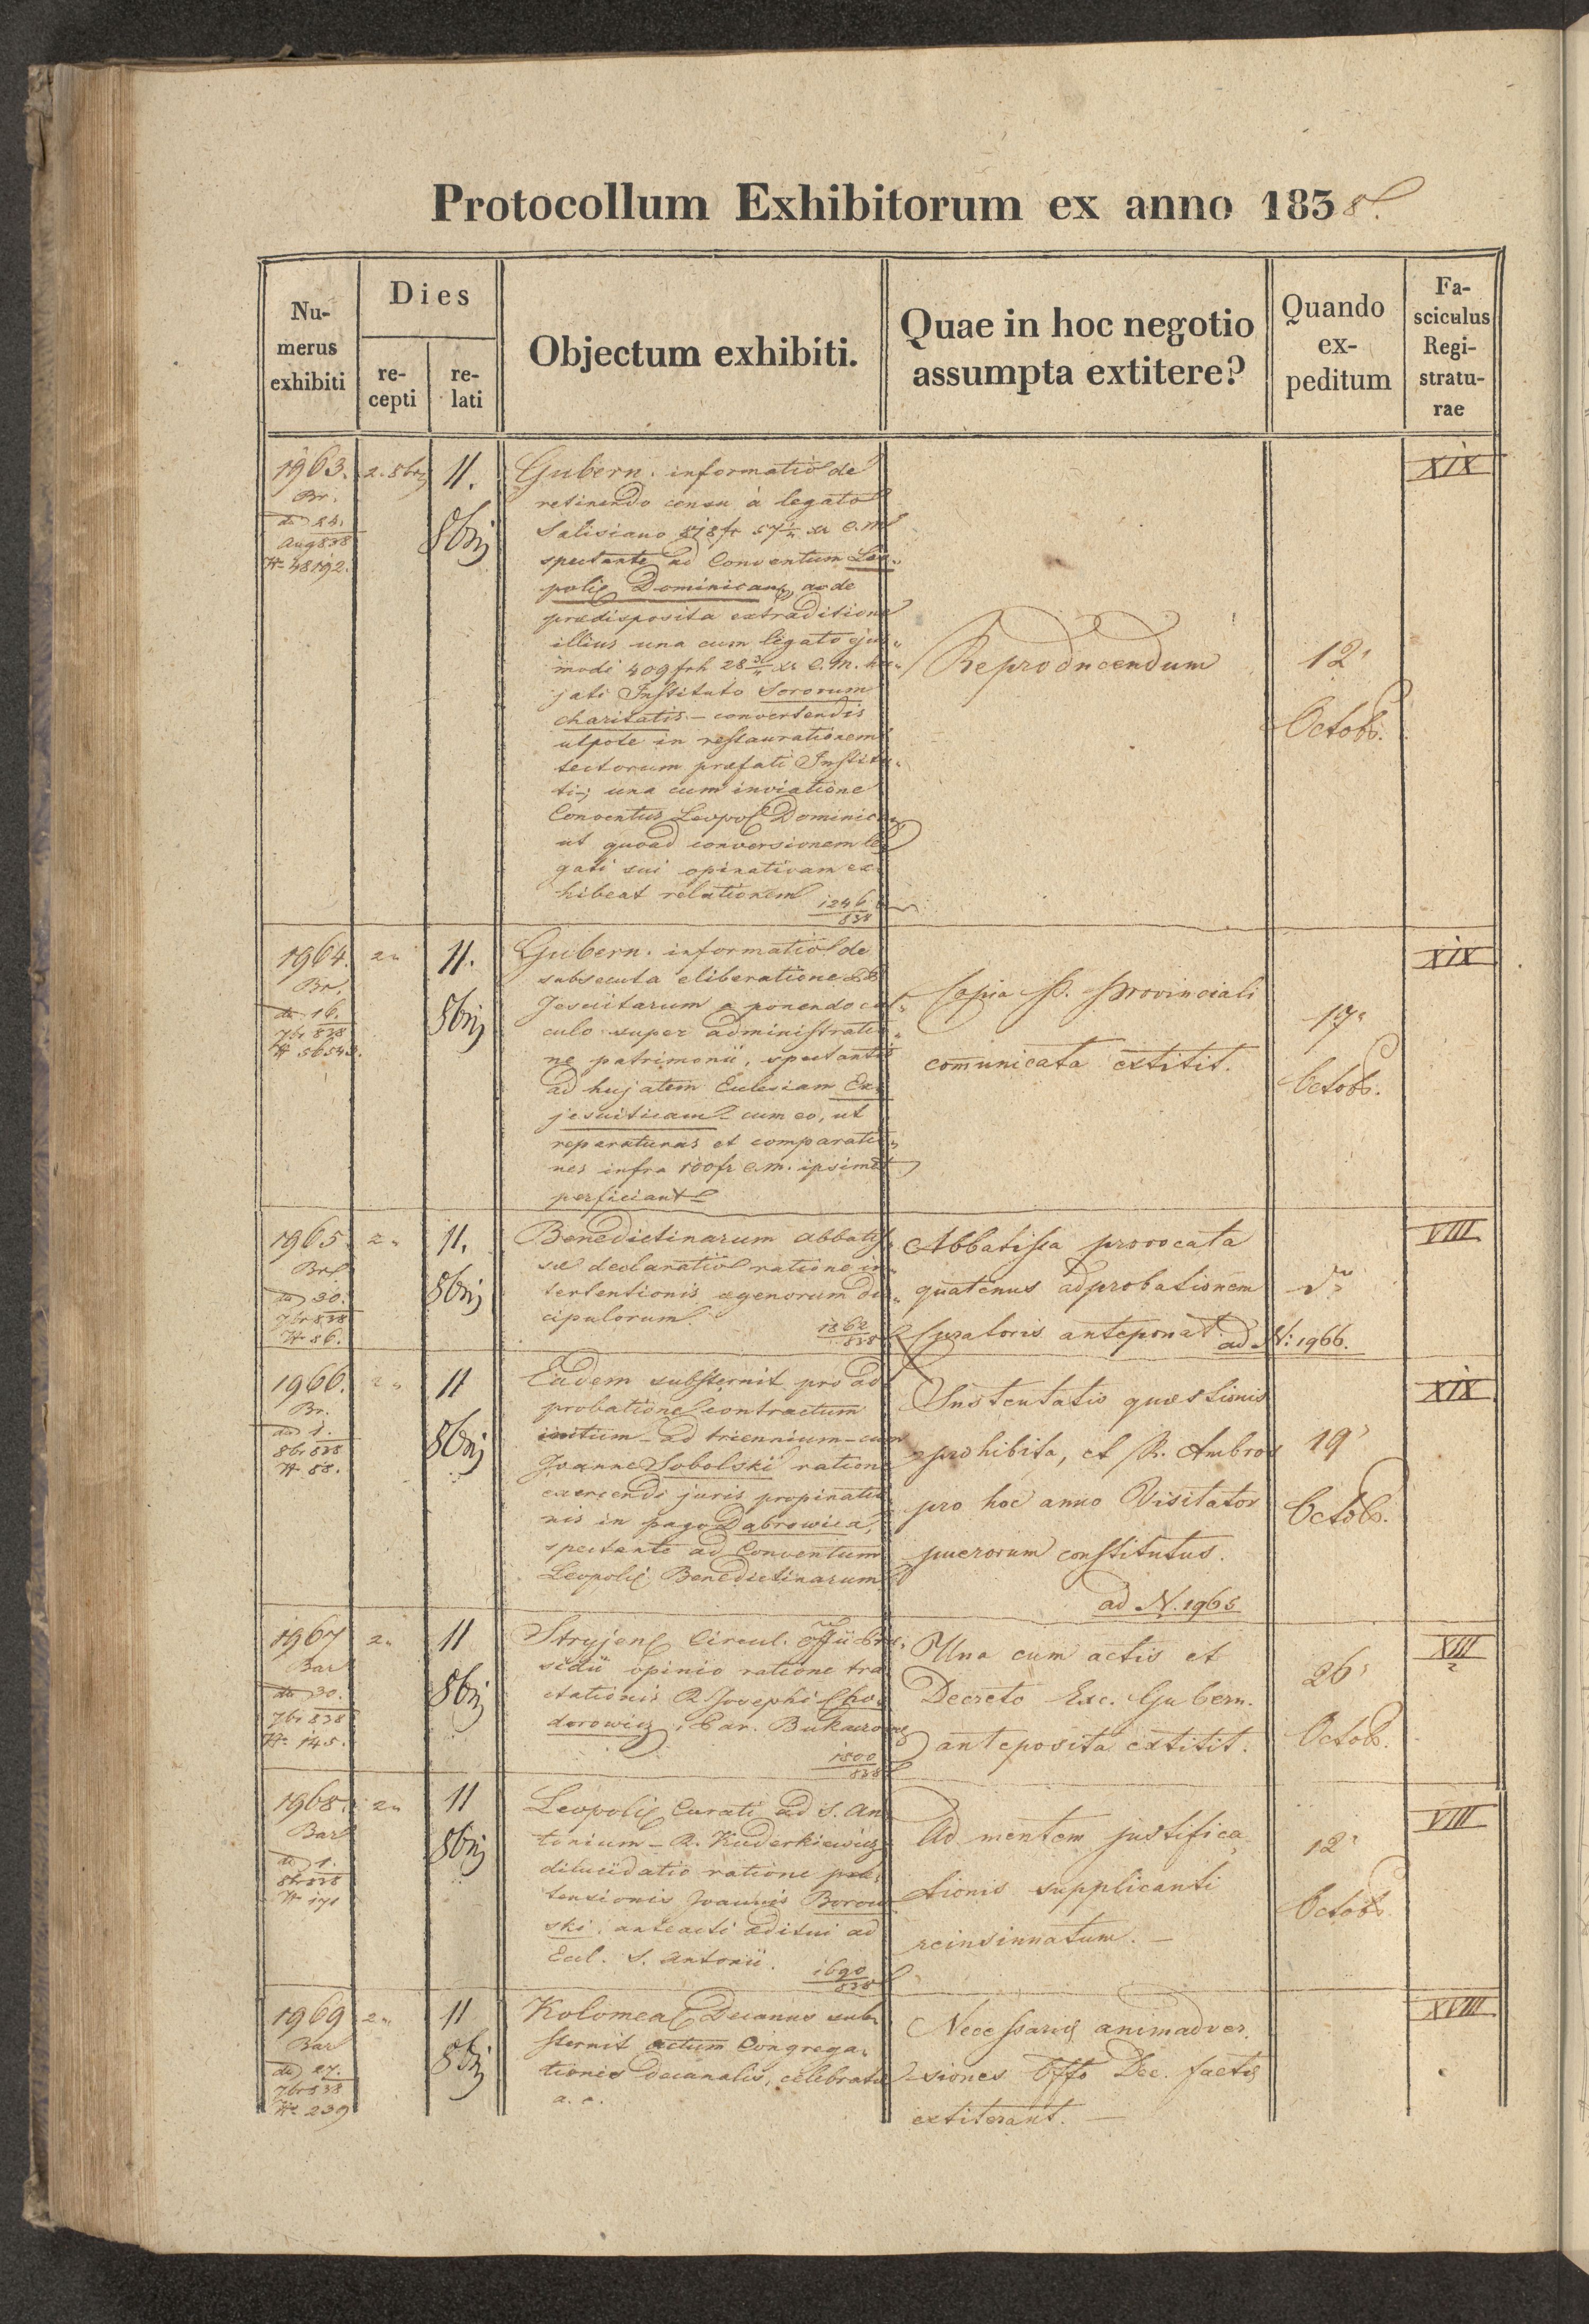 Protocollum Exhibitorum ex anno 1838.
Numerus exhibiti
Dies
recepti
relati
Objectum exhibiti.
Quae in hoc negotio assumpta extitere?
Quando expeditum
Fasciculus Registraturae
1963.
Br.
dto 24.
Aug 838
N 48192.
2. 8bris
11.
8bris
Gubern. informatio de
retinendo censu à legato
Salisiano 818 fr 57 xr C.M.
spectante ad Conventum Leo-
polis Dominican, ac de
prædisposita extraditione
illius una cum legato ejus-
modi 409 frh 28 3/4 xr C.M. hu-
jati Instituto Sororum
charitatis - convertendis
utpote in restaurationem
tectorum præfati Institu-
ti; una cum inviatione
Conventus Leopol Dominican
ut quoad conversionem le-
gati sui opinativam ex-
hibeat relationem
1246
838
Reproducendum
12
Octob.
XIX
1964.
Br.
dto 16.
7br 838
N 56543.
2
11.
8bris
Gubern. informatio de
subsecuta eliberatione
Jesuitarum a ponendo cal-
culo super administratio-
ne patrimonii, spectantis
ad hujatem Ecclesiam Ex-
jesuiticam - cum eo, ut
reparaturas et comparatio-
nes infra 100 fr C.M. ipsimet
perficiant
Copia P. Provinciali
comunicata extitit.
17
Octob.
XIX
1965.
Br
dto 30.
7br 838
N 86.
2
11.
8bris
Benedictinarum abbatis-
sæ declaratio ratione in-
tertentionis egenorum dis-
cipulorum.
1862
838
Abbatissa provocata
quatenus adprobationem
Curatoris anteponat.
ad N: 1966.
VIII
1966.
Br.
dto 1.
8br 838
N 88.
2
11
8bris
Eadem substernit pro ad-
probatione contractum
initum - ad triennium - cum
Joanne Sobolski ratione
exercendi juris propinatio-
nis in pago Dabrowica,
spectante ad Conventum
Leopolis Benedictinarum
Sustentatio quæstionis
prohibita, et R. Ambros
pro hoc anno Visitator
puerorum constitutus.
ad N. 1965
19
Octob.
XIX
1967
Bar
dto 30.
7br 838
N 145.
2
11
8bris
Stryjens Circul. Offii Præ-
sidii opinio ratione tra-
ctationis R. Josephi Cho-
dorowicz, Par. Bukaczo
1800
838
Una cum actis et
Decreto Exc. Gubern.
anteposita extitit.
26
Octob.
XIII
2
1968.
Bar
dto 1.
8br 838
N 171
2
11
8bris
Leopolis Curati ad S. An-
tonium - R. Kuderkiewicz
dilucidatio ratione præ-
tensionis Joannis Borow-
ski, anteacti æditui ad
Eccl. S. Antonii.
1690
838
Ad mentem justifica-
tionis supplicanti
reinsinuatum. -
12
Octob.
VIII
1969
Bar
dto 27.
7br 838
N 239
2
11
8bris
Kolomea Decanus sub-
sternit actum Congrega-
tionis decanalis, celebratæ
a. c.
Necessariæ animadver-
siones Offo Dec. factæ
extiterant. -
XVIII